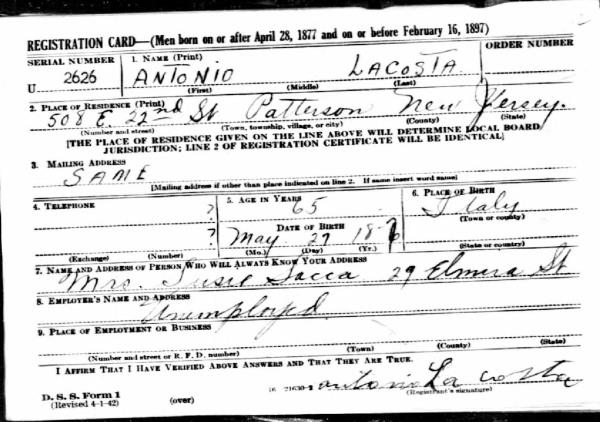 REGISTRATION CARD—(Men born on or after April 28, 1877 and on or before February 16, 1897)
SERIAL NUMBER 1. NAME (Print) ORDER NUMBER
U 2626 ANTONIO LACOSTA
(First) (Middle) (Last)
2. PLACE OF RESIDENCE (Print)
508 E. 22nd St Patterson New Jersey.
(Number and street) (Town, township, village, or city) (County) (State)
[THE PLACE OF RESIDENCE GIVEN ON THE LINE ABOVE WILL DETERMINE LOCAL BOARD
JURISDICTION; LINE 2 OF REGISTRATION CERTIFICATE WILL BE IDENTICAL]
3. MAILING ADDRESS
SAME
[Mailing address if other than place indicated on line 2. If same insert word same]
4. TELEPHONE 5. AGE IN YEARS 6. PLACE OF BIRTH
? 65 Italy
DATE OF BIRTH (Town or county)
? May 27 18
(Exchange) (Number) (Mo.) (Day) (Yr.) (State or country)
7. NAME AND ADDRESS OF PERSON WHO WILL ALWAYS KNOW YOUR ADDRESS
Mrs. Susie 29 St
8. EMPLOYER'S NAME AND ADDRESS
Unemployed
9. PLACE OF EMPLOYMENT OR BUSINESS
(Number and street or R. F. D. number) (Town) (County) (State)
I AFFIRM THAT I HAVE VERIFIED ABOVE ANSWERS AND THAT THEY ARE TRUE.
D. S. S. Form 1 16 21630-1 antonio La costa
(Revised 4-1-42) (over) (Registrant's signature)